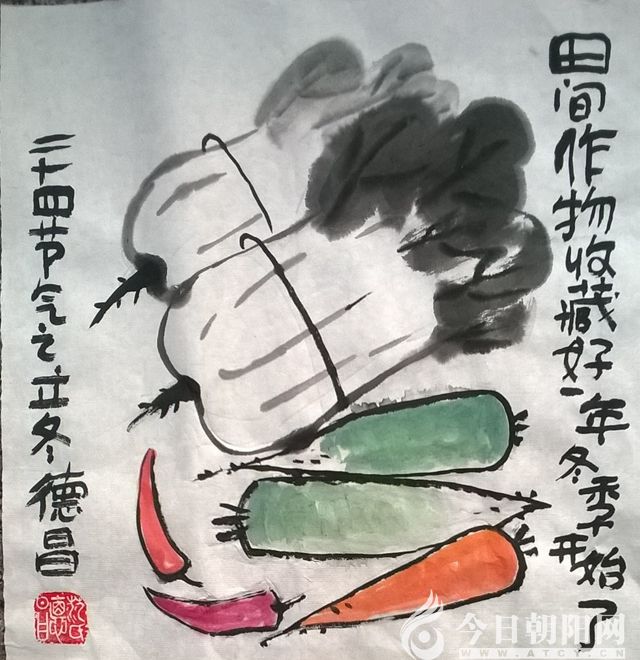 田间作物收藏好一年冬季开始了
二十四节气之立冬德昌
今日朝阳网
WWW.ATCY.CN